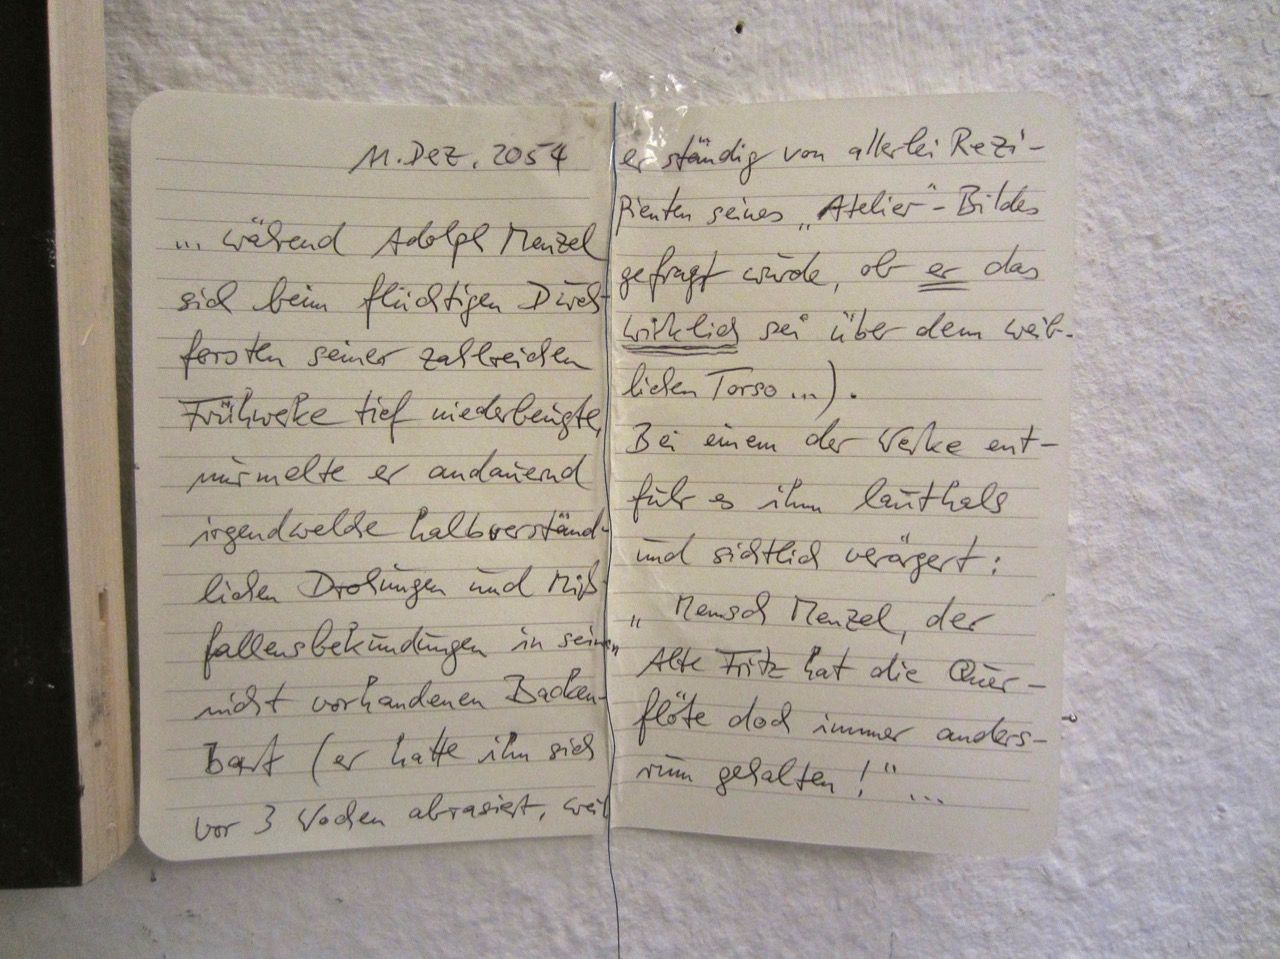 11. Dez. 2054
... während Adolph Menzel
sich beim flüchtigen Durch-
forsten seiner zahlreichen
Frühwerke tief niederbeugte,
murmelte er andauernd
irgendwelche halbverständ-
lichen Drohungen und Miß-
fallensbekundungen in seinen
nicht vorhandenen Backen-
Bart (er hatte ihn sich
vor 3 Wochen abrasiert, weil
er ständig von allerlei Rezi-
pienten seines „Atelier"-Bildes
gefragt wurde, ob er das
wirklich sei über dem weib-
lichen Torso...).
Bei einem der Werke ent-
fuhr es ihm lauthals
und sichtlich verärgert:
„Mensch Menzel, der
Alte Fritz hat die Quer-
flöte doch immer anders-
rum gehalten!" ...